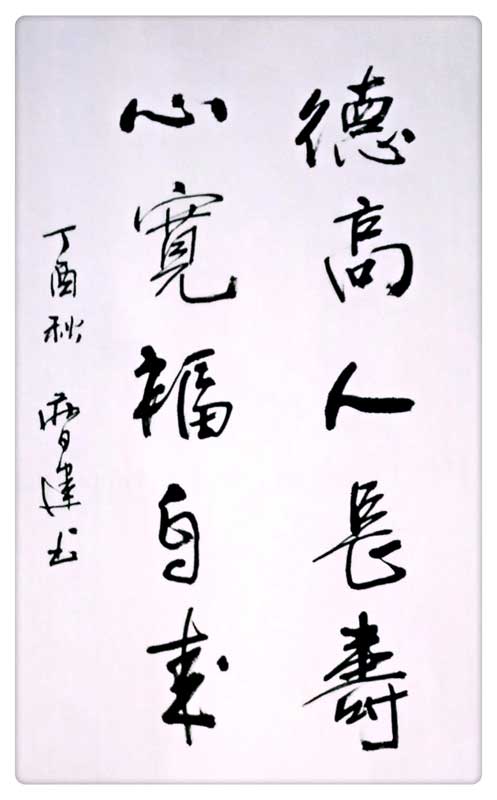 德高人長壽
心寬福自来
丁酉秋 建书